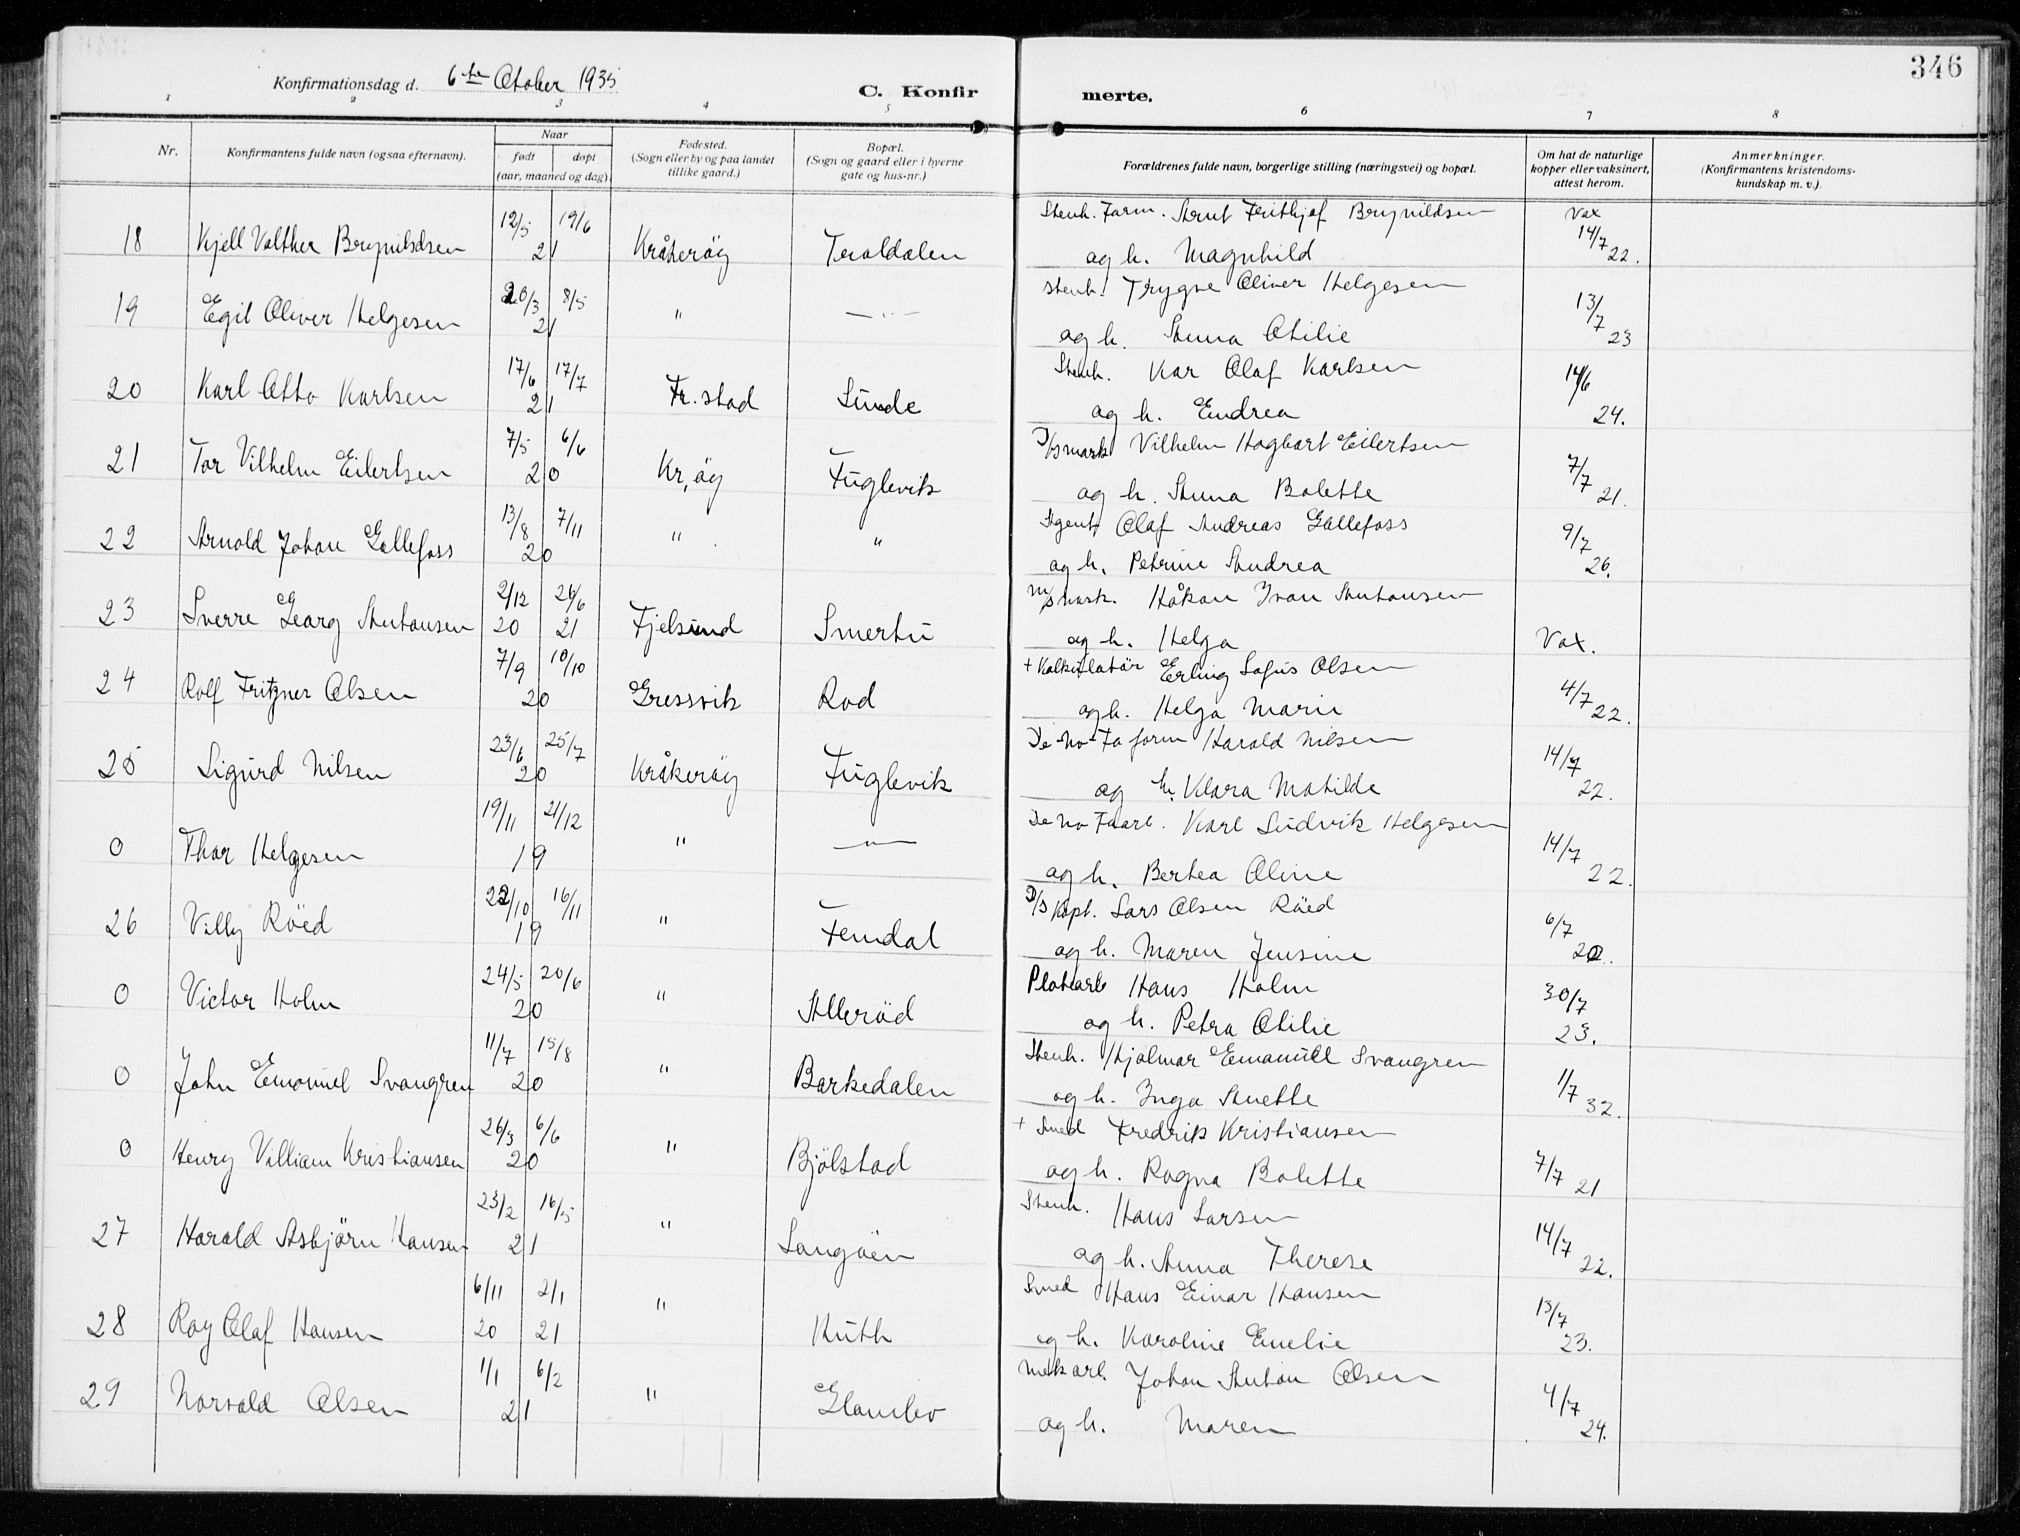 346
Konfirmationsdag d. 6te Oktober 1935
C. Konfirmerte.
1 2 3 4 5 6 7 8
Nr.
Konfirmantens fulde navn (ogsaa efternavn).
Naar
født døpt
(aar, maaned og dag)
Fødested.
(Sogn eller by og paa landet
tillike gaard.)
Bopæl.
(Sogn og gaard eller i byerne
gate og hus-nr.)
Forældrenes fulde navn, borgerlige stilling (næringsvei) og bopæl.
Om hat de naturlige
kopper eller vaksinert,
attest herom.
Anmerkninger.
(Konfirmantens kristendoms-
kundskap m. v.).
Stenh. Form. Arnt Frithjof Brynildsen Vax
18 Kjell Valther Brynildsen 12/5 19/6 21 Kråkerøy Traldalen og h. Magnhild 14/7 22.
Stenh. Trygve Oliver Helgesen
19 Egil Oliver Helgesen 20/3 8/5 21 " — " — og h. Anna Otilie 13/7 23
Stenh. Kar Olaf Karlsen
20 Karl Otto Karlsen 17/6 17/7 21 Fr.stad Lunde og h. Endrea 14/6 24.
D/smask Vilhelm Hagbart Eilertsen
21 Tor Vilhelm Eilertsen 7/5 6/6 20 Kr,øy Fuglevik og h. Anna Bolette 7/7 21.
Agent Olaf Andreas Gallefoss
22 Arnold Johan Gallefoss 13/8 7/11 20 " " og h. Petrine Andrea 9/7 26.
m/smask. Håkon Ivan Antonsen
23 Sverre Georg Antonsen 2/12 20 26/6 21 Fjelsund Smertu og h. Helga Vax.
+ Kalkulatør Erling Sofus Olsen
24 Rolf Fritzner Olsen 7/9 10/10 20 Gressvik Rød og h. Helga Marie 4/7 22.
De-No-Fa form Harald Nilsen
25 Sigurd Nilsen 23/6 25/7 20 Kråkerøy Fuglevik og h. Klara Matilde 14/7 22.
De No Fa arb. Karl Ludvik Helgesen
0 Thor Helgesen 19/11 21/12 19 " — " — og h. Bertea Oline 14/7 22.
D/s Kapt. Lars Olsen Røed
26 Villy Røed 22/10 16/11 19 " Femdal og h. Maren Jensine 6/7
Platearb Hans Holm
0 Victor Holm 24/5 20/6 20 " Allerød og h. Petra Otilie 30/7 23.
Stenh. Hjalmar Emanuel Svangren
0 John Emanuel Svangren 11/7 15/8 20 " Barkedalen og h. Inga Anette 1/7 32.
+ Smed Fredrik Kristiansen
0 Henry Villiam Kristiansen 26/3 6/6 20 " Bjølstad og h. Ragna Bolette 7/7 21
Stenh. Hans Larsen
27 Harald Asbjørn Hansen 23/2 16/5 21 " Langøen og h. Anna Therese 14/7 22.
Smed Hans Einar Hansen
28 Roy Olaf Hansen 6/11 20 2/1 21 " Huth og h. Karoline Emelie 13/7 23.
Mek arb. Johan Anton Olsen
29 Norvald Olsen 1/1 6/2 21 " Glombo og h. Maren 4/7 24.